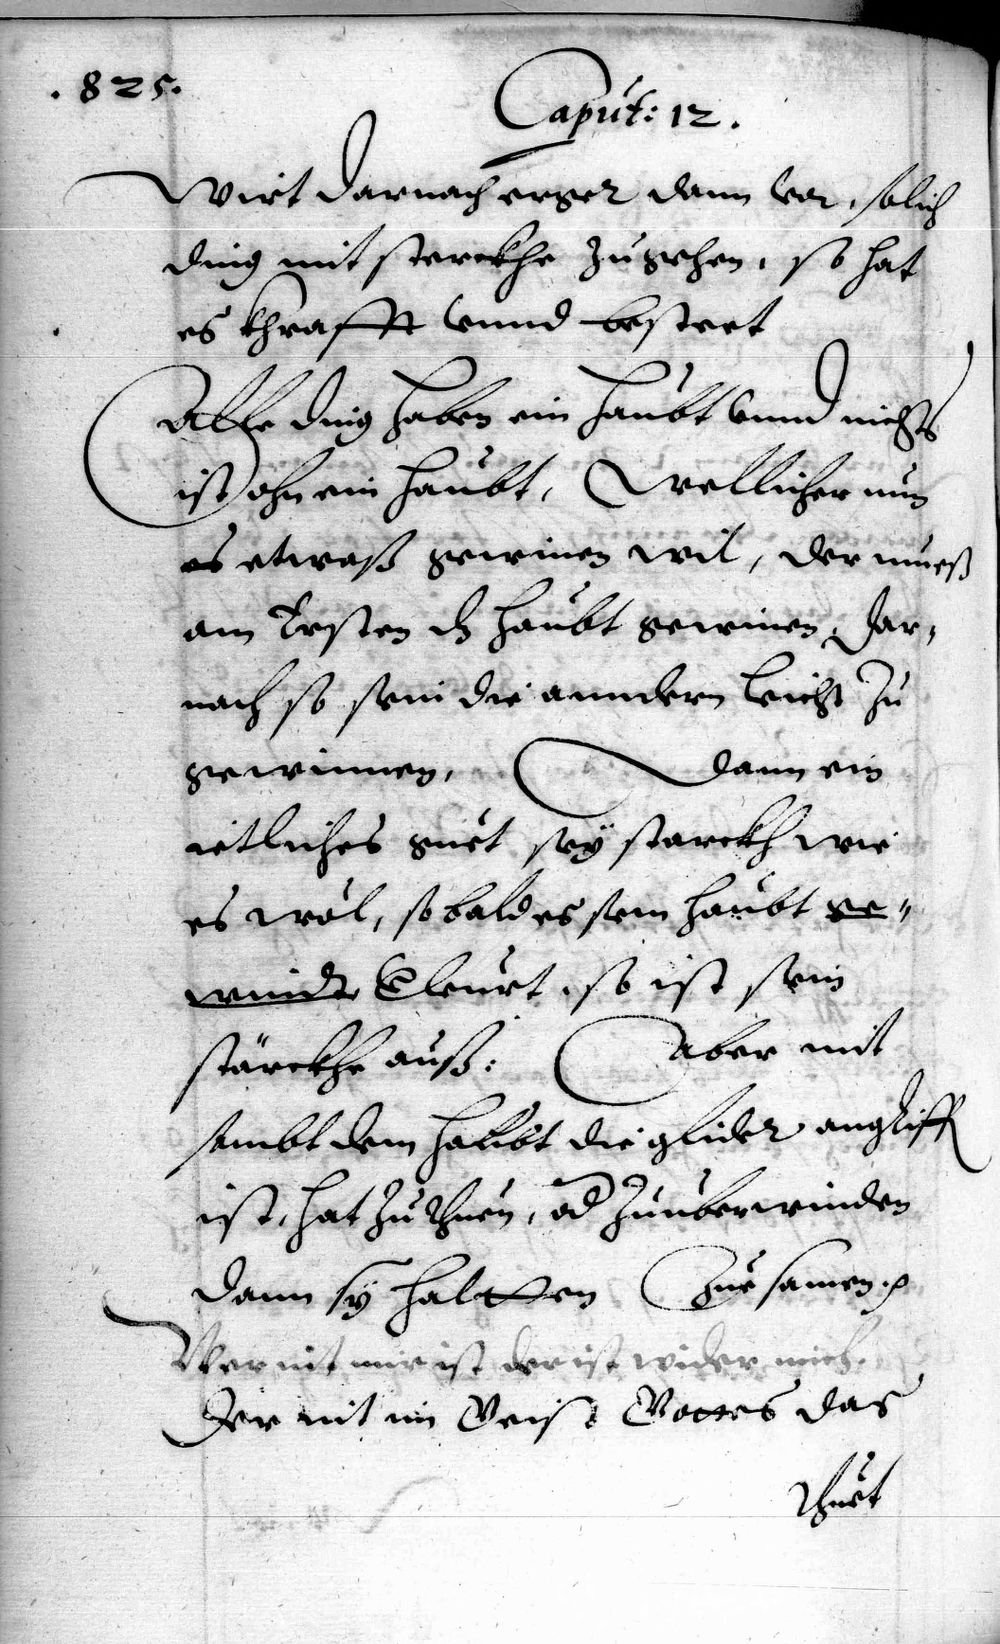 . 825.
Caput: 12.
Wirt darnach erger dann vor, solich
ding mit sterckhe zu gehen, so hat
es khrafft vnnd besteet
Alle ding haben ein haubt vnnd nichts
ist ohn ein haubt, Wellicher nun
es etwaß gewinen wil, der mueß
am Ersten dz haubt gewinen, Dar„
nach so sein die anndern leicht zu
gewinnen, Dann ein
ietliches guet sey starckh wie
es wöl, so bald es sein haubt ge„
windt verleurt, so ist sein
stärckhe auß: Aber mit
sambt dem haubt die glider angriff
ist, hat zu thuen, od zu überwinden
dann sy haltten Zue samen.
Wer nit mir ist der ist wider mich.
Der nit im Geist Gottes das
thuet